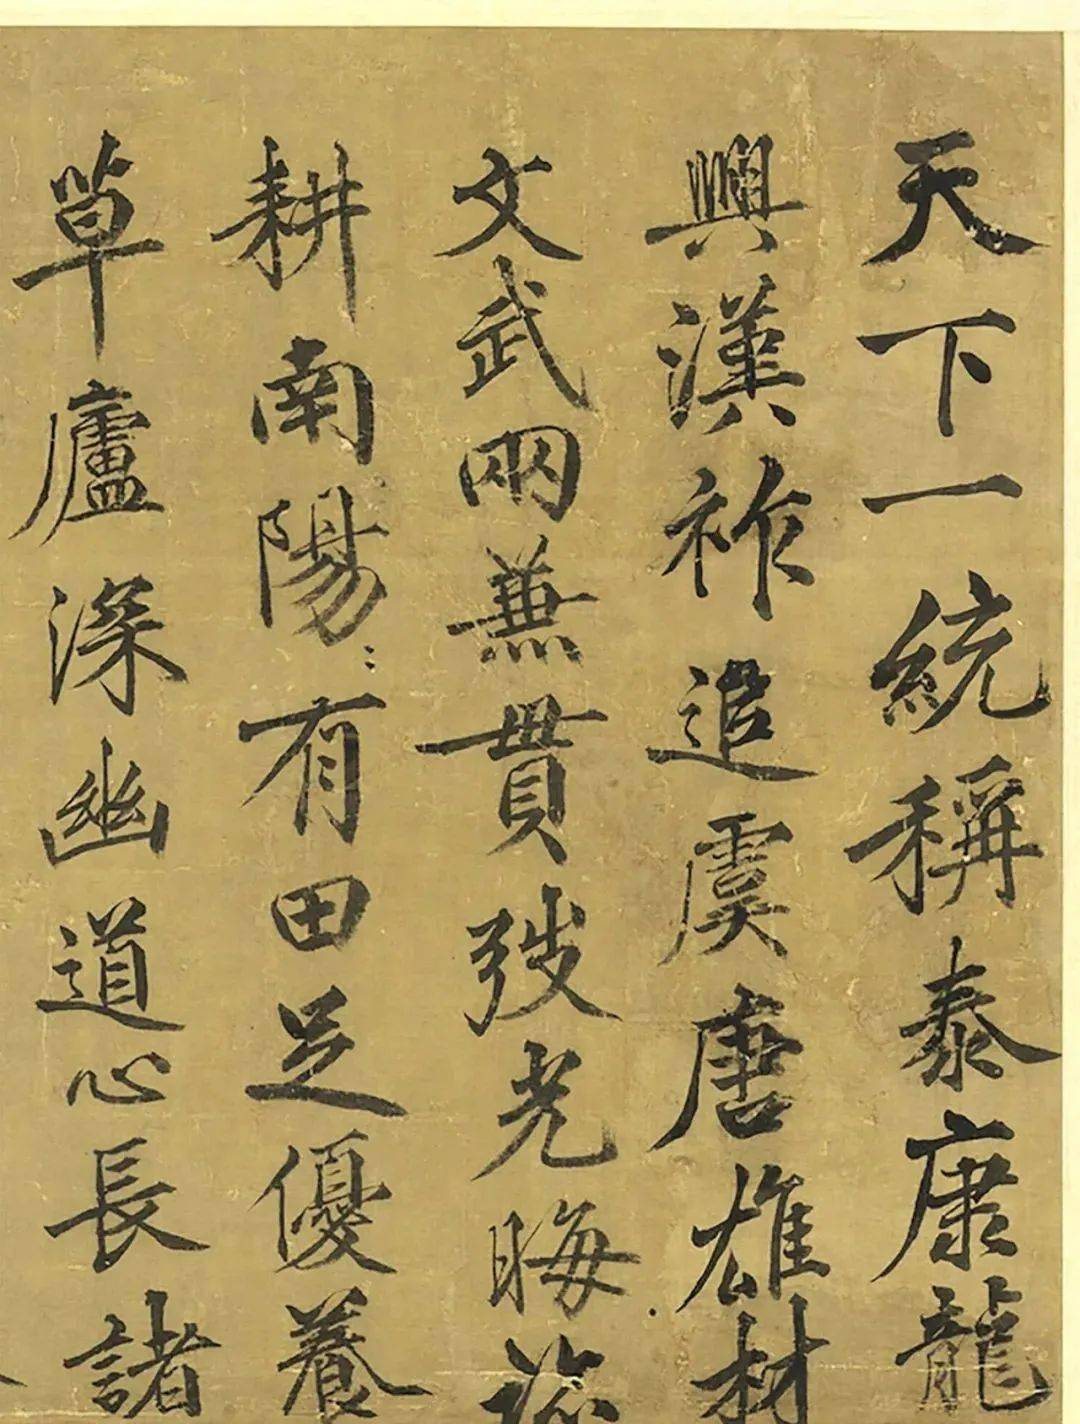 天下一統稱泰康龍
興漢祚追虞唐雄材
文武兩兼貫弢光晦
耕南陽有田足優養
草廬深幽道心長諸